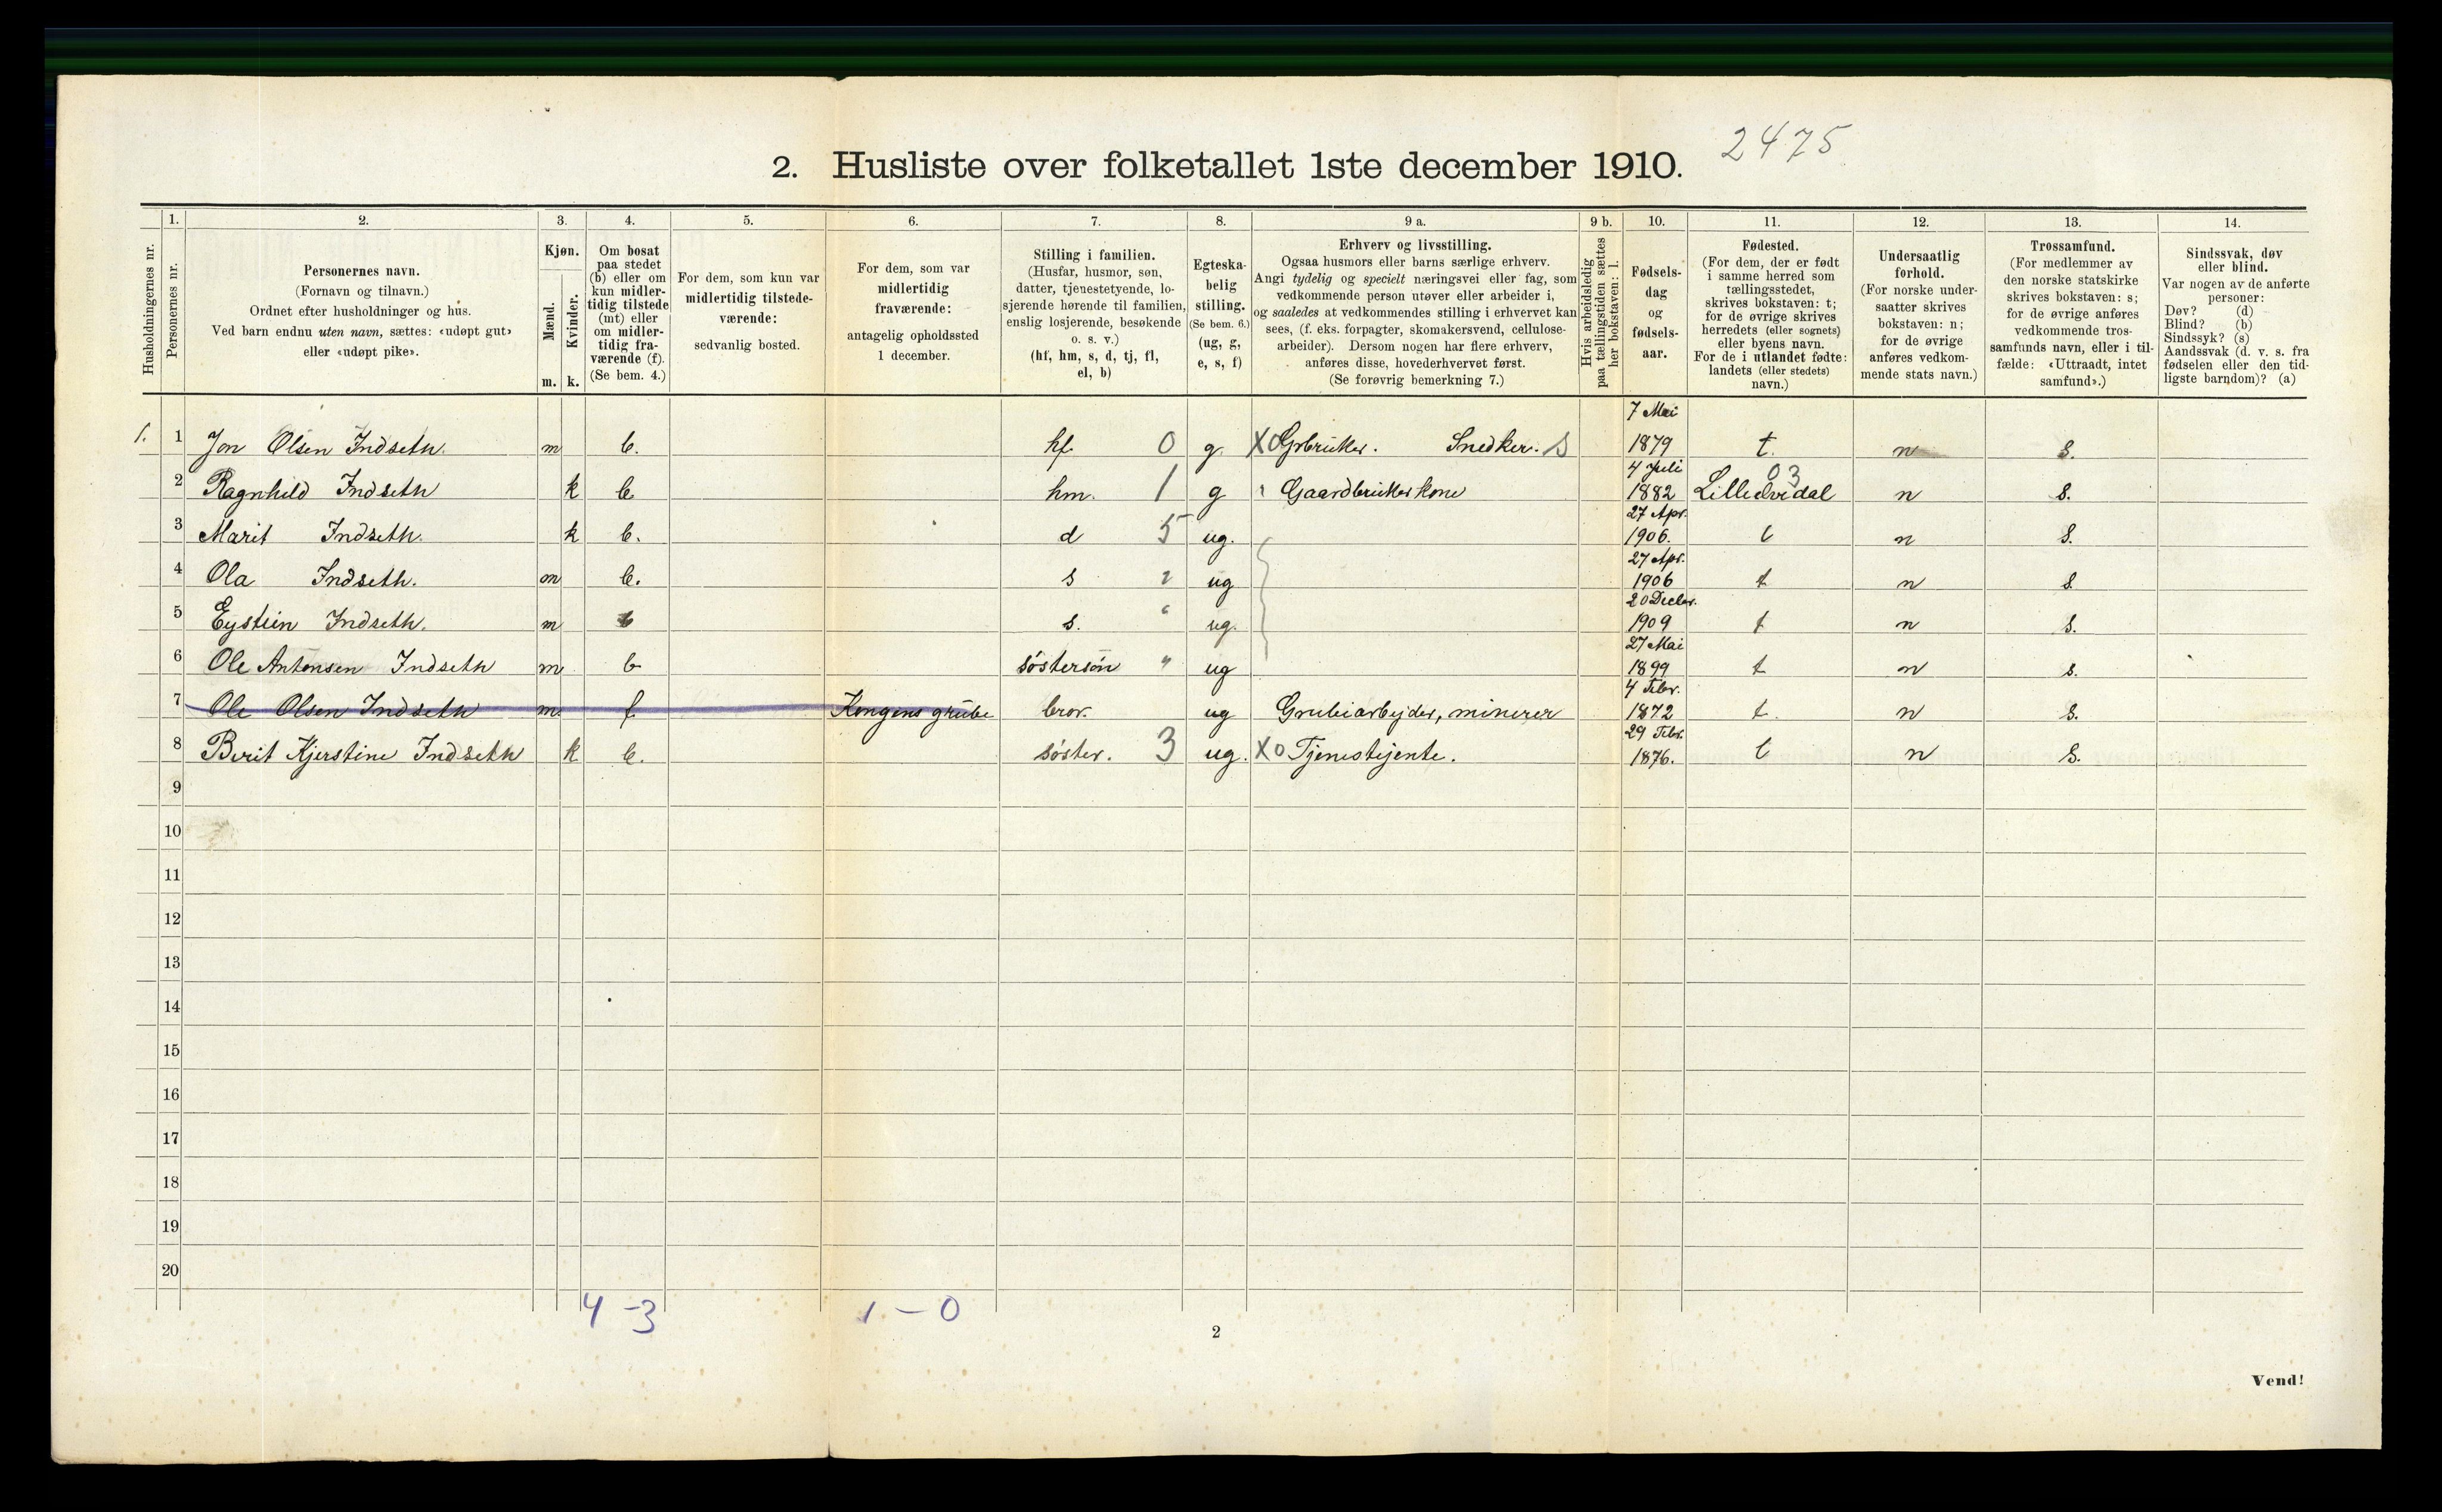 2475
2. Husliste over folketallet 1ste december 1910.
Husholdningernes nr.
1. Personernes nr.
2. Personernes navn. (Fornavn og tilnavn.) Ordnet efter husholdninger og hus. Ved barn endnu uten navn, sættes: «udøpt gut» eller «udøpt pike».
3. Kjøn. Mænd. m. Kvinder. k.
4. Om bosat paa stedet (b) eller om kun midlertidig tilstede (mt) eller om midlertidig fraværende (f). (Se bem. 4.)
5. For dem, som kun var midlertidig tilstedeværende: sedvanlig bosted.
6. For dem, som var midlertidig fraværende: antagelig opholdssted 1 december.
7. Stilling i familien. (Husfar, husmor, søn, datter, tjenestetyende, losjerende hørende til familien, enslig losjerende, besøkende o. s. v.) (hf, hm, s, d, tj, fl, el, b)
8. Egteskabelig stilling. (Se bem. 6.) (ug, g, e, s, f)
9 a. Erhverv og livsstilling. Ogsaa husmors eller barns særlige erhverv. Angi tydelig og specielt næringsvei eller fag, som vedkommende person utøver eller arbeider i, og saaledes at vedkommendes stilling i erhvervet kan sees, (f. eks. forpagter, skomakersvend, cellulosearbeider). Dersom nogen har flere erhverv, anføres disse, hovederhvervet først. (Se forøvrig bemerkning 7.)
9 b. Hvis arbeidsledig paa tællingstiden sættes her bokstaven: l.
10. Fødselsdag og fødselsaar.
11. Fødested. (For dem, der er født i samme herred som tællingsstedet, skrives bokstaven: t; for de øvrige skrives herredets (eller sognets) eller byens navn. For de i utlandet fødte: landets (eller stedets) navn.)
12. Undersaatlig forhold. (For norske undersaatter skrives bokstaven: n; for de øvrige anføres vedkommende stats navn.)
13. Trossamfund. (For medlemmer av den norske statskirke skrives bokstaven: s; for de øvrige anføres vedkommende trossamfunds navn, eller i tilfælde: «Uttraadt, intet samfund».)
14. Sindssvak, døv eller blind. Var nogen av de anførte personer: Døv? (d) Blind? (b) Sindssyk? (s) Aandssvak (d. v. s. fra fødselen eller den tidligste barndom)? (a)
1. 1 Jon Olsen Indseth. m b. hf. 0 g. X0 Grbruker. Snedker. S 7 Mai 1879 t. n s.
2 Ragnhild Indseth k b hm. 1 g Gaardbrukerkone 4 Juli 1882 Lilleelvedal 03 n s.
3 Marit Indseth. k b. d 5 ug. 27 Apr. 1906. t n s.
4 Ola Indseth. m b. s ug 27 Apr. 1906 t n s.
5 Eystein Indseth. m b s. ug. 20 Decbr. 1909 t n s.
6 Ole Antonsen Indseth m b søstersøn " ug 27 Mai 1899 t n s.
7 Ole Olsen Indseth m. f Kongens grube bror. ug Grubearbejder, minerer 4 Febr. 1872 t. n s.
8 Berit Kjerstine Indseth k b. søster. 3 ug. X0 Tjenestejente. 29 Febr. 1876. t n s.
9
10
11
12
13
14
15
16
17
18
19
20
4 - 3 1 - 0
2
Vend!